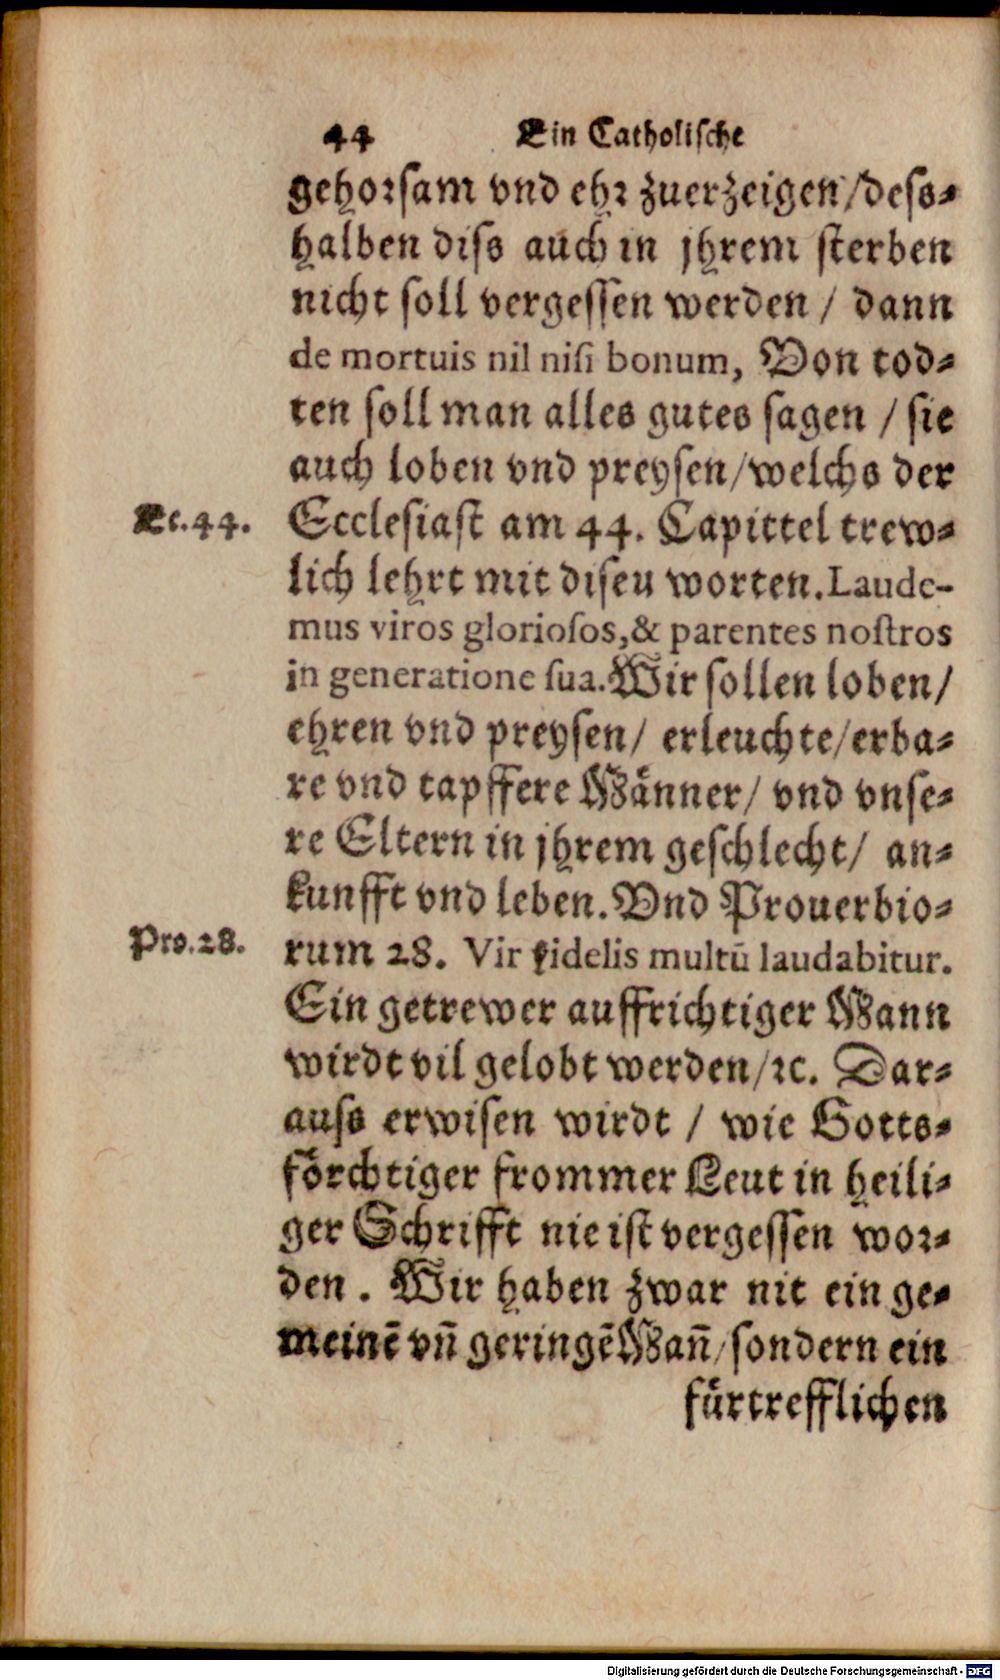 44 Ein Catholische
gehorsam vnd ehr zuerzeigen/dess-
halben diss auch in jhrem sterben
nicht soll vergessen werden / dann
de mortuis nil nisi bonum, Von tod-
ten soll man alles gutes sagen / sie
auch loben vnd preysen/welchs der
Ec.44.
Ecclesiast am 44. Capittel trew-
lich lehrt mit diseu worten.Laude-
mus viros gloriosos,& parentes nostros
in generatione sua.Wir sollen loben/
ehren vnd preysen/ erleuchte/erba-
re vnd tapffere Männer/ vnd vnse-
re Eltern in jhrem geschlecht/ an-
kunfft vnd leben.Vnd Prouerbio-
Pro.28.
rum 28. Vir fidelis multū laudabitur.
Ein getrewer auffrichtiger Mann
wirdt vil gelobt werden/ꝛc. Dar-
auss erwisen wirdt / wie Gotts-
förchtiger frommer Leut in heili-
ger Schrifft nie ist vergessen wor-
den . Wir haben zwar nit ein ge-
meinē vñ geringē Mañ/sondern ein
fürtrefflichen
Digitalisierung gefördert durch die Deutsche Forschungsgemeinschaft - DFG